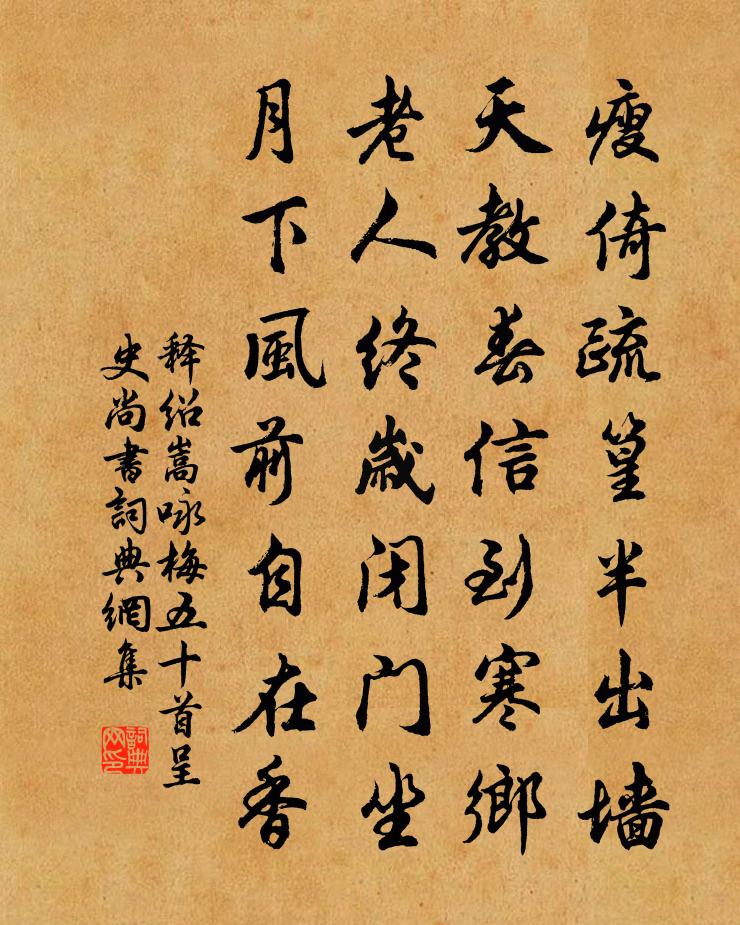 瘦倚疏篁半出墙
天教春信到寒鄉
老人终歲闭门坐
月下風前自在香
释绍嵩咏梅五十首呈
史尚書詞典網集
詞典
网印